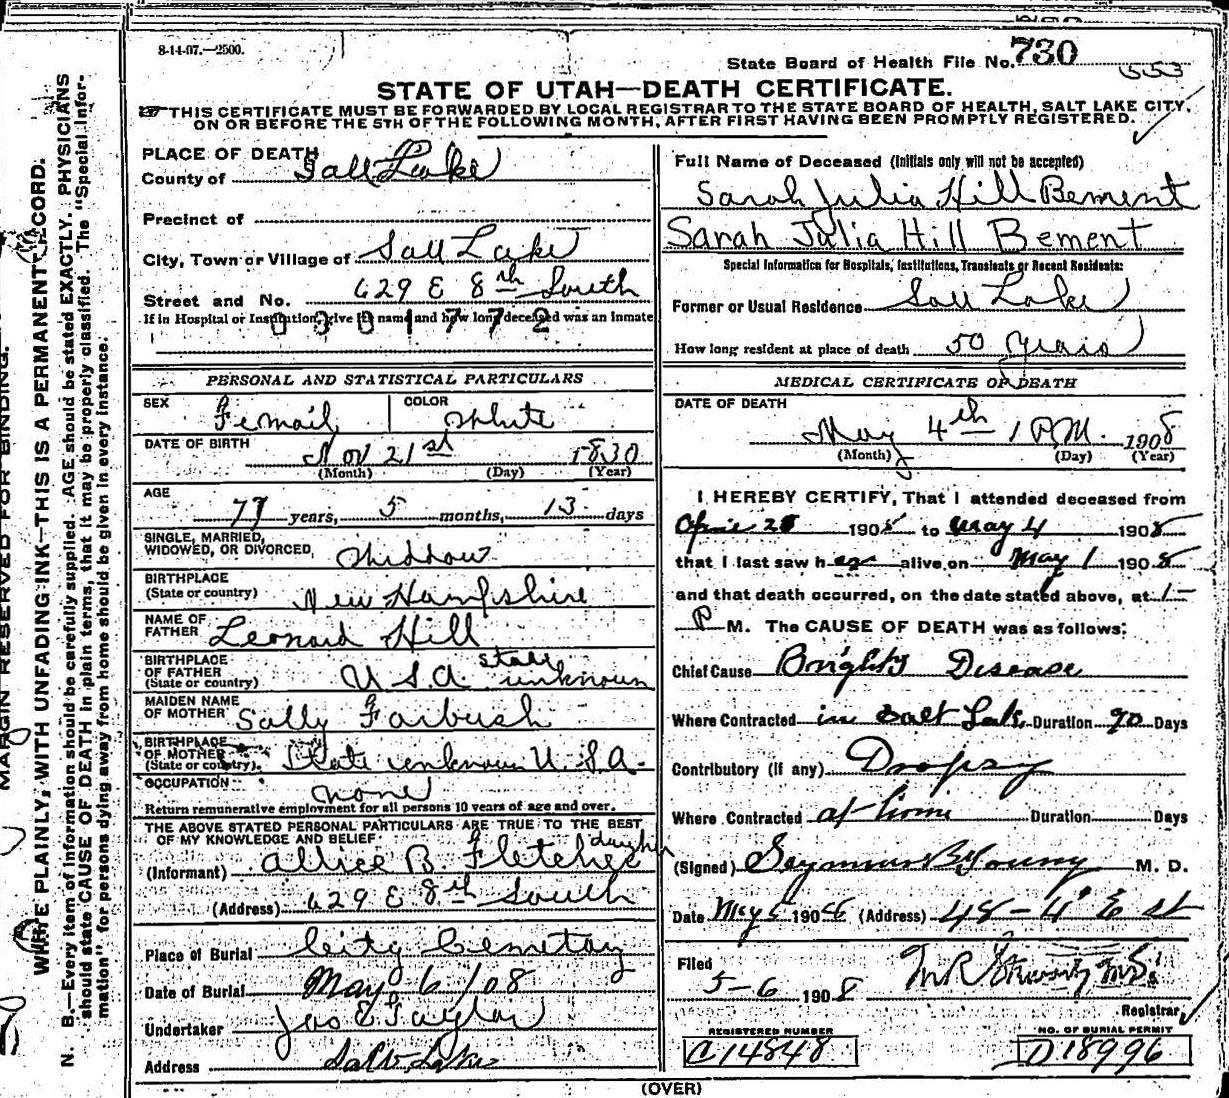 8-14-07.—2500.
State Board of Health File No. 730
553
STATE OF UTAH—DEATH CERTIFICATE.
THIS CERTIFICATE MUST BE FORWARDED BY LOCAL REGISTRAR TO THE STATE BOARD OF HEALTH, SALT LAKE CITY,
ON OR BEFORE THE 5TH OF THE FOLLOWING MONTH, AFTER FIRST HAVING BEEN PROMPTLY REGISTERED.
MARGIN RESERVED FOR BINDING.
WRITE PLAINLY, WITH UNFADING INK—THIS IS A PERMANENT RECORD.
N. B.—Every item of information should be carefully supplied. AGE should be stated EXACTLY. PHYSICIANS
should state CAUSE OF DEATH in plain terms, that it may be properly classified. The "Special Infor-
mation" for persons dying away from home should be given in every instance.
PLACE OF DEATH
County of Salt Lake
Precinct of
City, Town or Village of Salt Lake
Street and No. 629 E 8th South
If in Hospital or Institution, give its name and how long deceased was an inmate
0301772
PERSONAL AND STATISTICAL PARTICULARS
SEX Femail COLOR White
DATE OF BIRTH Nov 21st 1830
(Month) (Day) (Year)
AGE 77 years, 5 months, 13 days
SINGLE, MARRIED,
WIDOWED, OR DIVORCED, Widdow
BIRTHPLACE
(State or country) New Hampshire
NAME OF
FATHER Leonard Hill
BIRTHPLACE
OF FATHER
(State or country) U.S.A. state unknown
MAIDEN NAME
OF MOTHER Sally Farbush
BIRTHPLACE
OF MOTHER
(State or country). State unknown U.S.A.
OCCUPATION none
Return remunerative employment for all persons 10 years of age and over.
THE ABOVE STATED PERSONAL PARTICULARS ARE TRUE TO THE BEST
OF MY KNOWLEDGE AND BELIEF
(Informant) Allice B. Fletcher
(Address) 629 E 8th South
Place of Burial City Cemetary
Date of Burial May 6/08
Undertaker Jas E Taylor
Address Salt Lake
Full Name of Deceased (Initials only will not be accepted)
Sarah Julia Hill Bement
Sarah Julia Hill Bement
Special Information for Hospitals, Institutions, Transients or Recent Residents:
Former or Usual Residence Salt Lake
How long resident at place of death 50 years
MEDICAL CERTIFICATE OF DEATH
DATE OF DEATH
May 4th 1 P.M. 1908
(Month) (Day) (Year)
I HEREBY CERTIFY, That I attended deceased from
April 1908 to May 4 1908
that I last saw her alive on May 1 1908
and that death occurred, on the date stated above, at 1
P M. The CAUSE OF DEATH was as follows:
Chief Cause Brights Disease
Where Contracted in Salt Lake Duration 90 Days
Contributory (if any) Dropsy
Where Contracted at home Duration Days
(Signed) Seymour B Young M. D.
Date May 5 1908 (Address) 48-4" E st
Filed
5-6 1908
Registrar
REGISTERED NUMBER
C14848
NO. OF BURIAL PERMIT
D18996
(OVER)